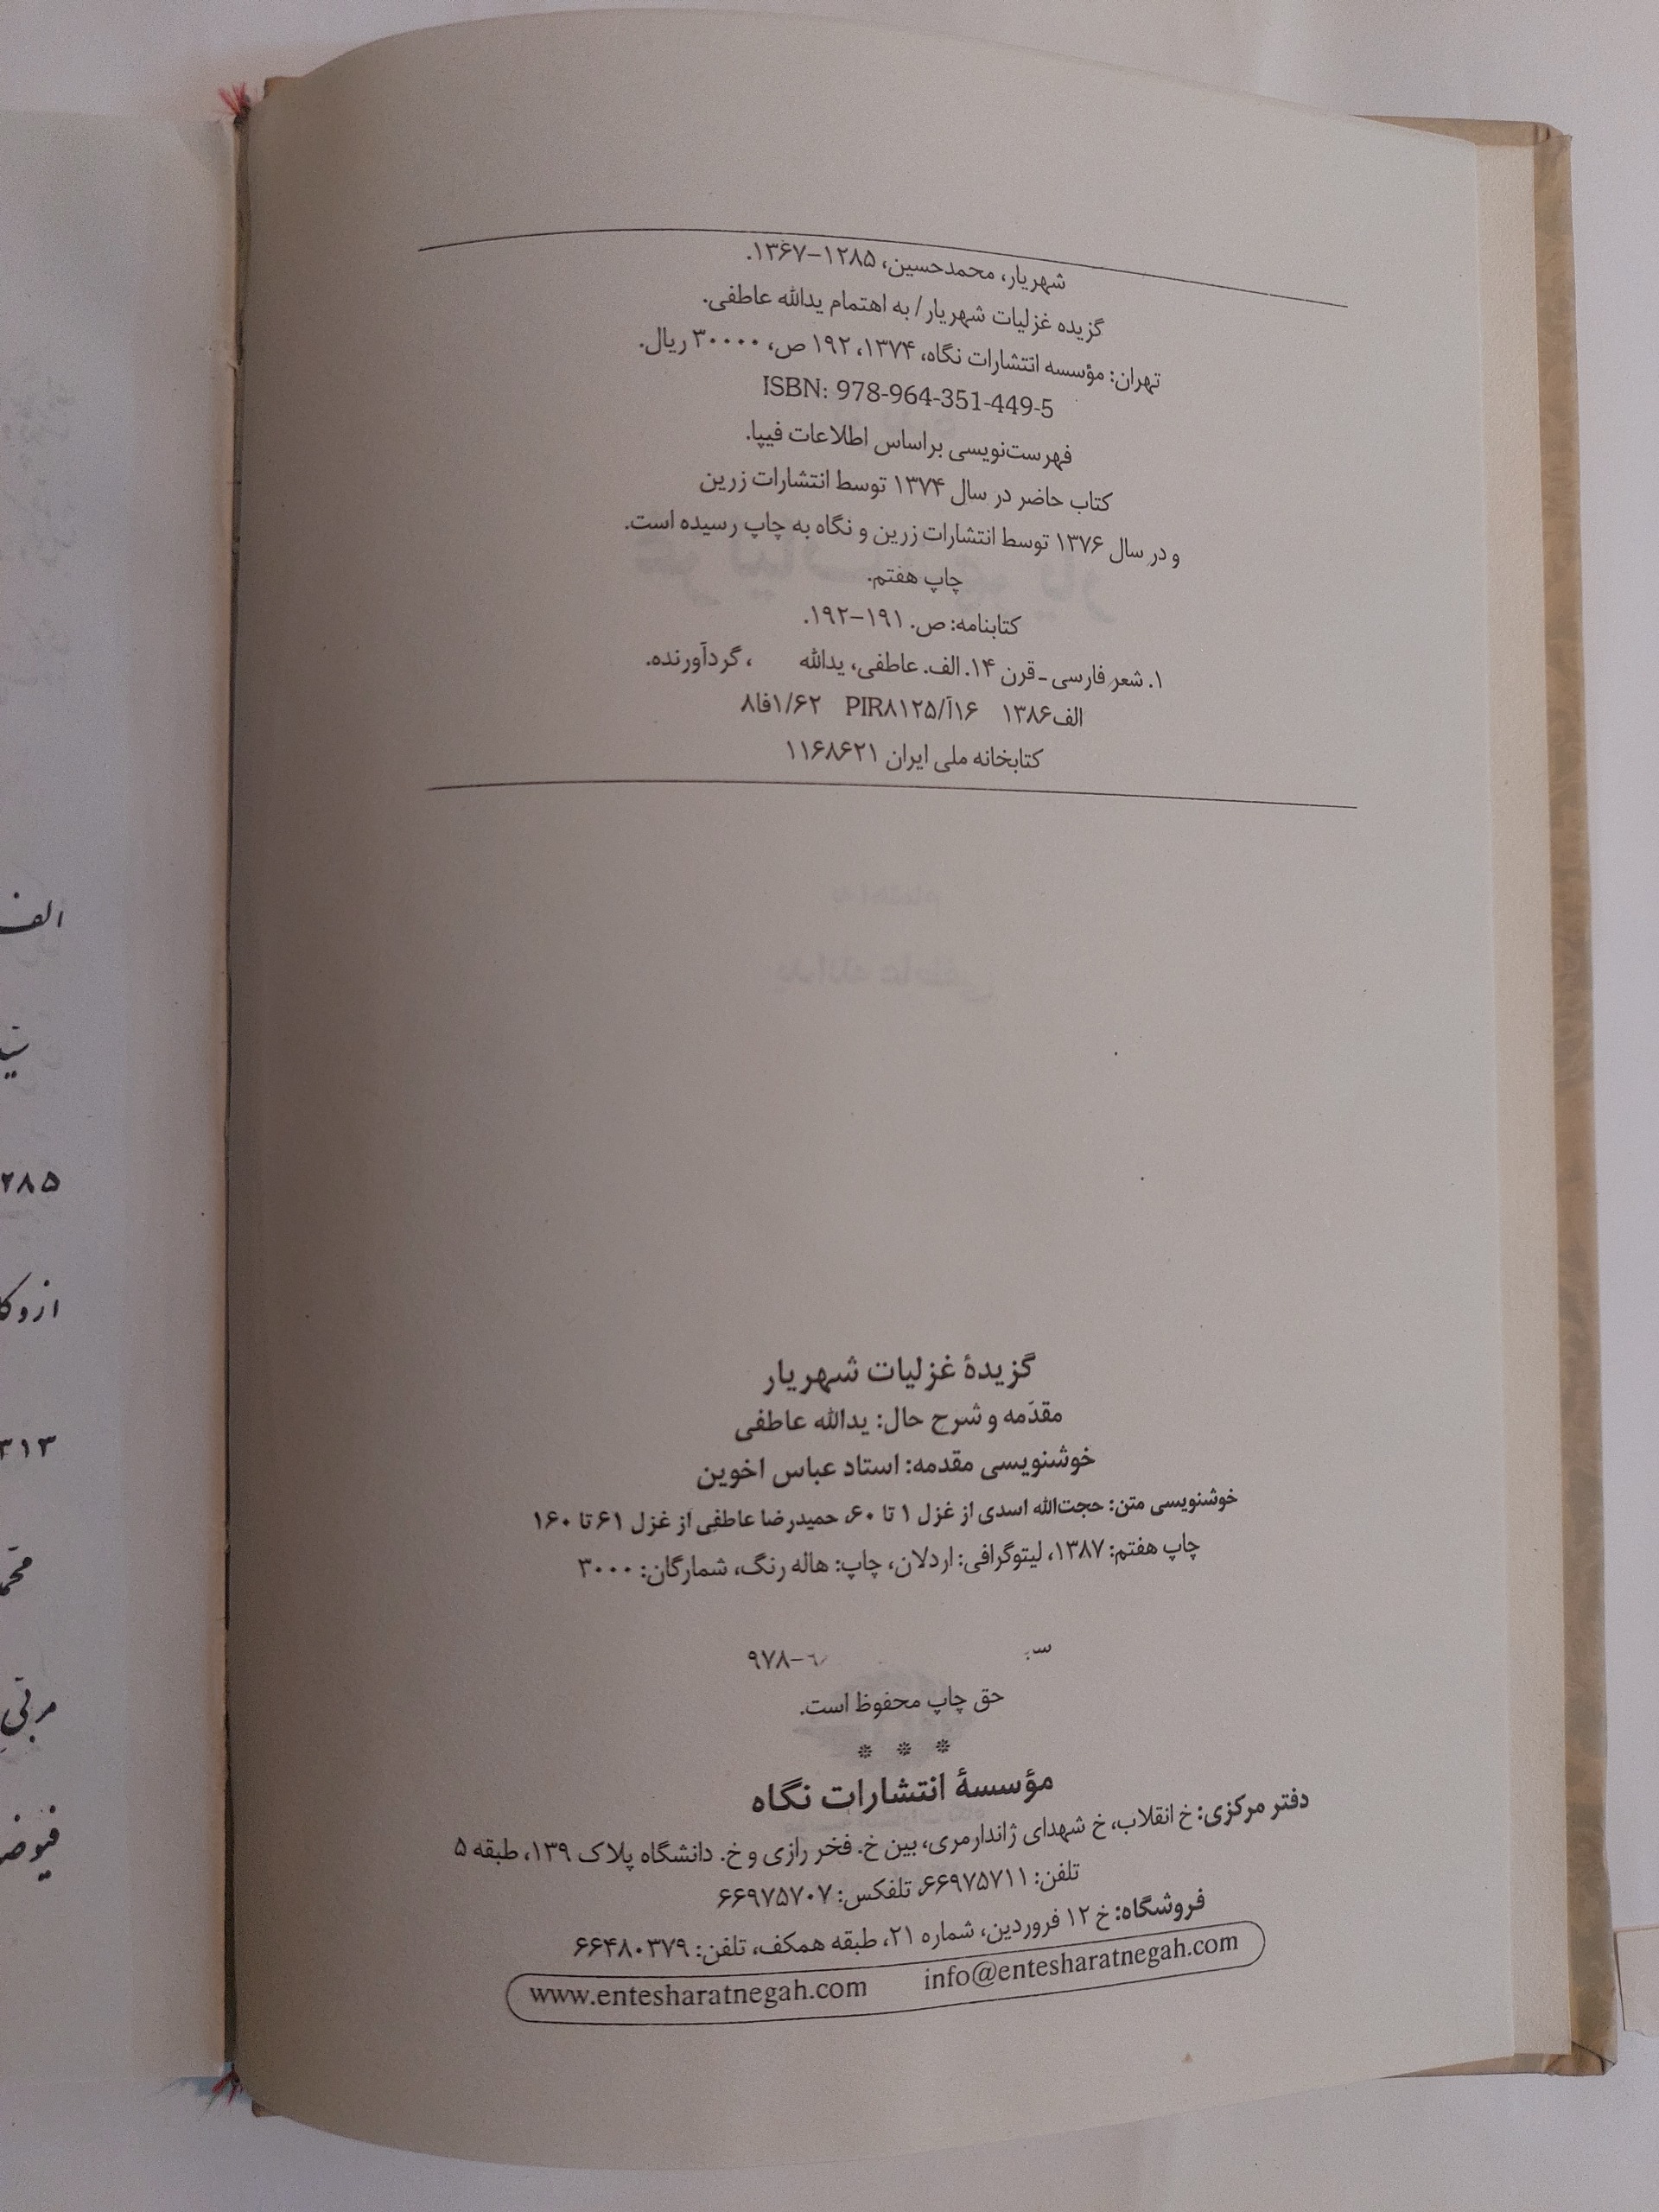 شهریار، محمدحسین، ۱۲۸۵–۱۳۶۷.
گزیده غزلیات شهریار/ به اهتمام یدالله عاطفی.
تهران: مؤسسه انتشارات نگاه، ۱۳۷۴، ۱۹۲ ص، ۳۰۰۰۰ ریال.
ISBN: 978-964-351-449-5
فهرست‌نویسی براساس اطلاعات فیپا.
کتاب حاضر در سال ۱۳۷۴ توسط انتشارات زرین
و در سال ۱۳۷۶ توسط انتشارات زرین و نگاه به چاپ رسیده است.
چاپ هفتم.
کتابنامه: ص. ۱۹۱–۱۹۲.
۱. شعر فارسی ـ قرن ۱۴. الف. عاطفی، یدالله ، گردآورنده.
الف۱۳۸۶ ۱۶آ/PIR۸۱۲۵ ۱/۶۲فا۸
کتابخانه ملی ایران ۱۱۶۸۶۲۱
گزیدهٔ غزلیات شهریار
مقدّمه و شرح حال: یدالله عاطفی
خوشنویسی مقدمه: استاد عباس اخوین
خوشنویسی متن: حجت‌الله اسدی از غزل ۱ تا ۶۰، حمیدرضا عاطفی از غزل ۶۱ تا ۱۶۰
چاپ هفتم: ۱۳۸۷، لیتوگرافی: اردلان، چاپ: هاله رنگ، شمارگان: ۳۰۰۰
۹۷۸–
حق چاپ محفوظ است.
* * *
مؤسسهٔ انتشارات نگاه
دفتر مرکزی: خ انقلاب، خ شهدای ژاندارمری، بین خ. فخر رازی و خ. دانشگاه پلاک ۱۳۹، طبقه ۵
تلفن: ۶۶۹۷۵۷۱۱، تلفکس: ۶۶۹۷۵۷۰۷
فروشگاه: خ ۱۲ فروردین، شماره ۲۱، طبقه همکف، تلفن: ۶۶۴۸۰۳۷۹
www.entesharatnegah.com info@entesharatnegah.com
الف
۲۸۵
۳۱۳